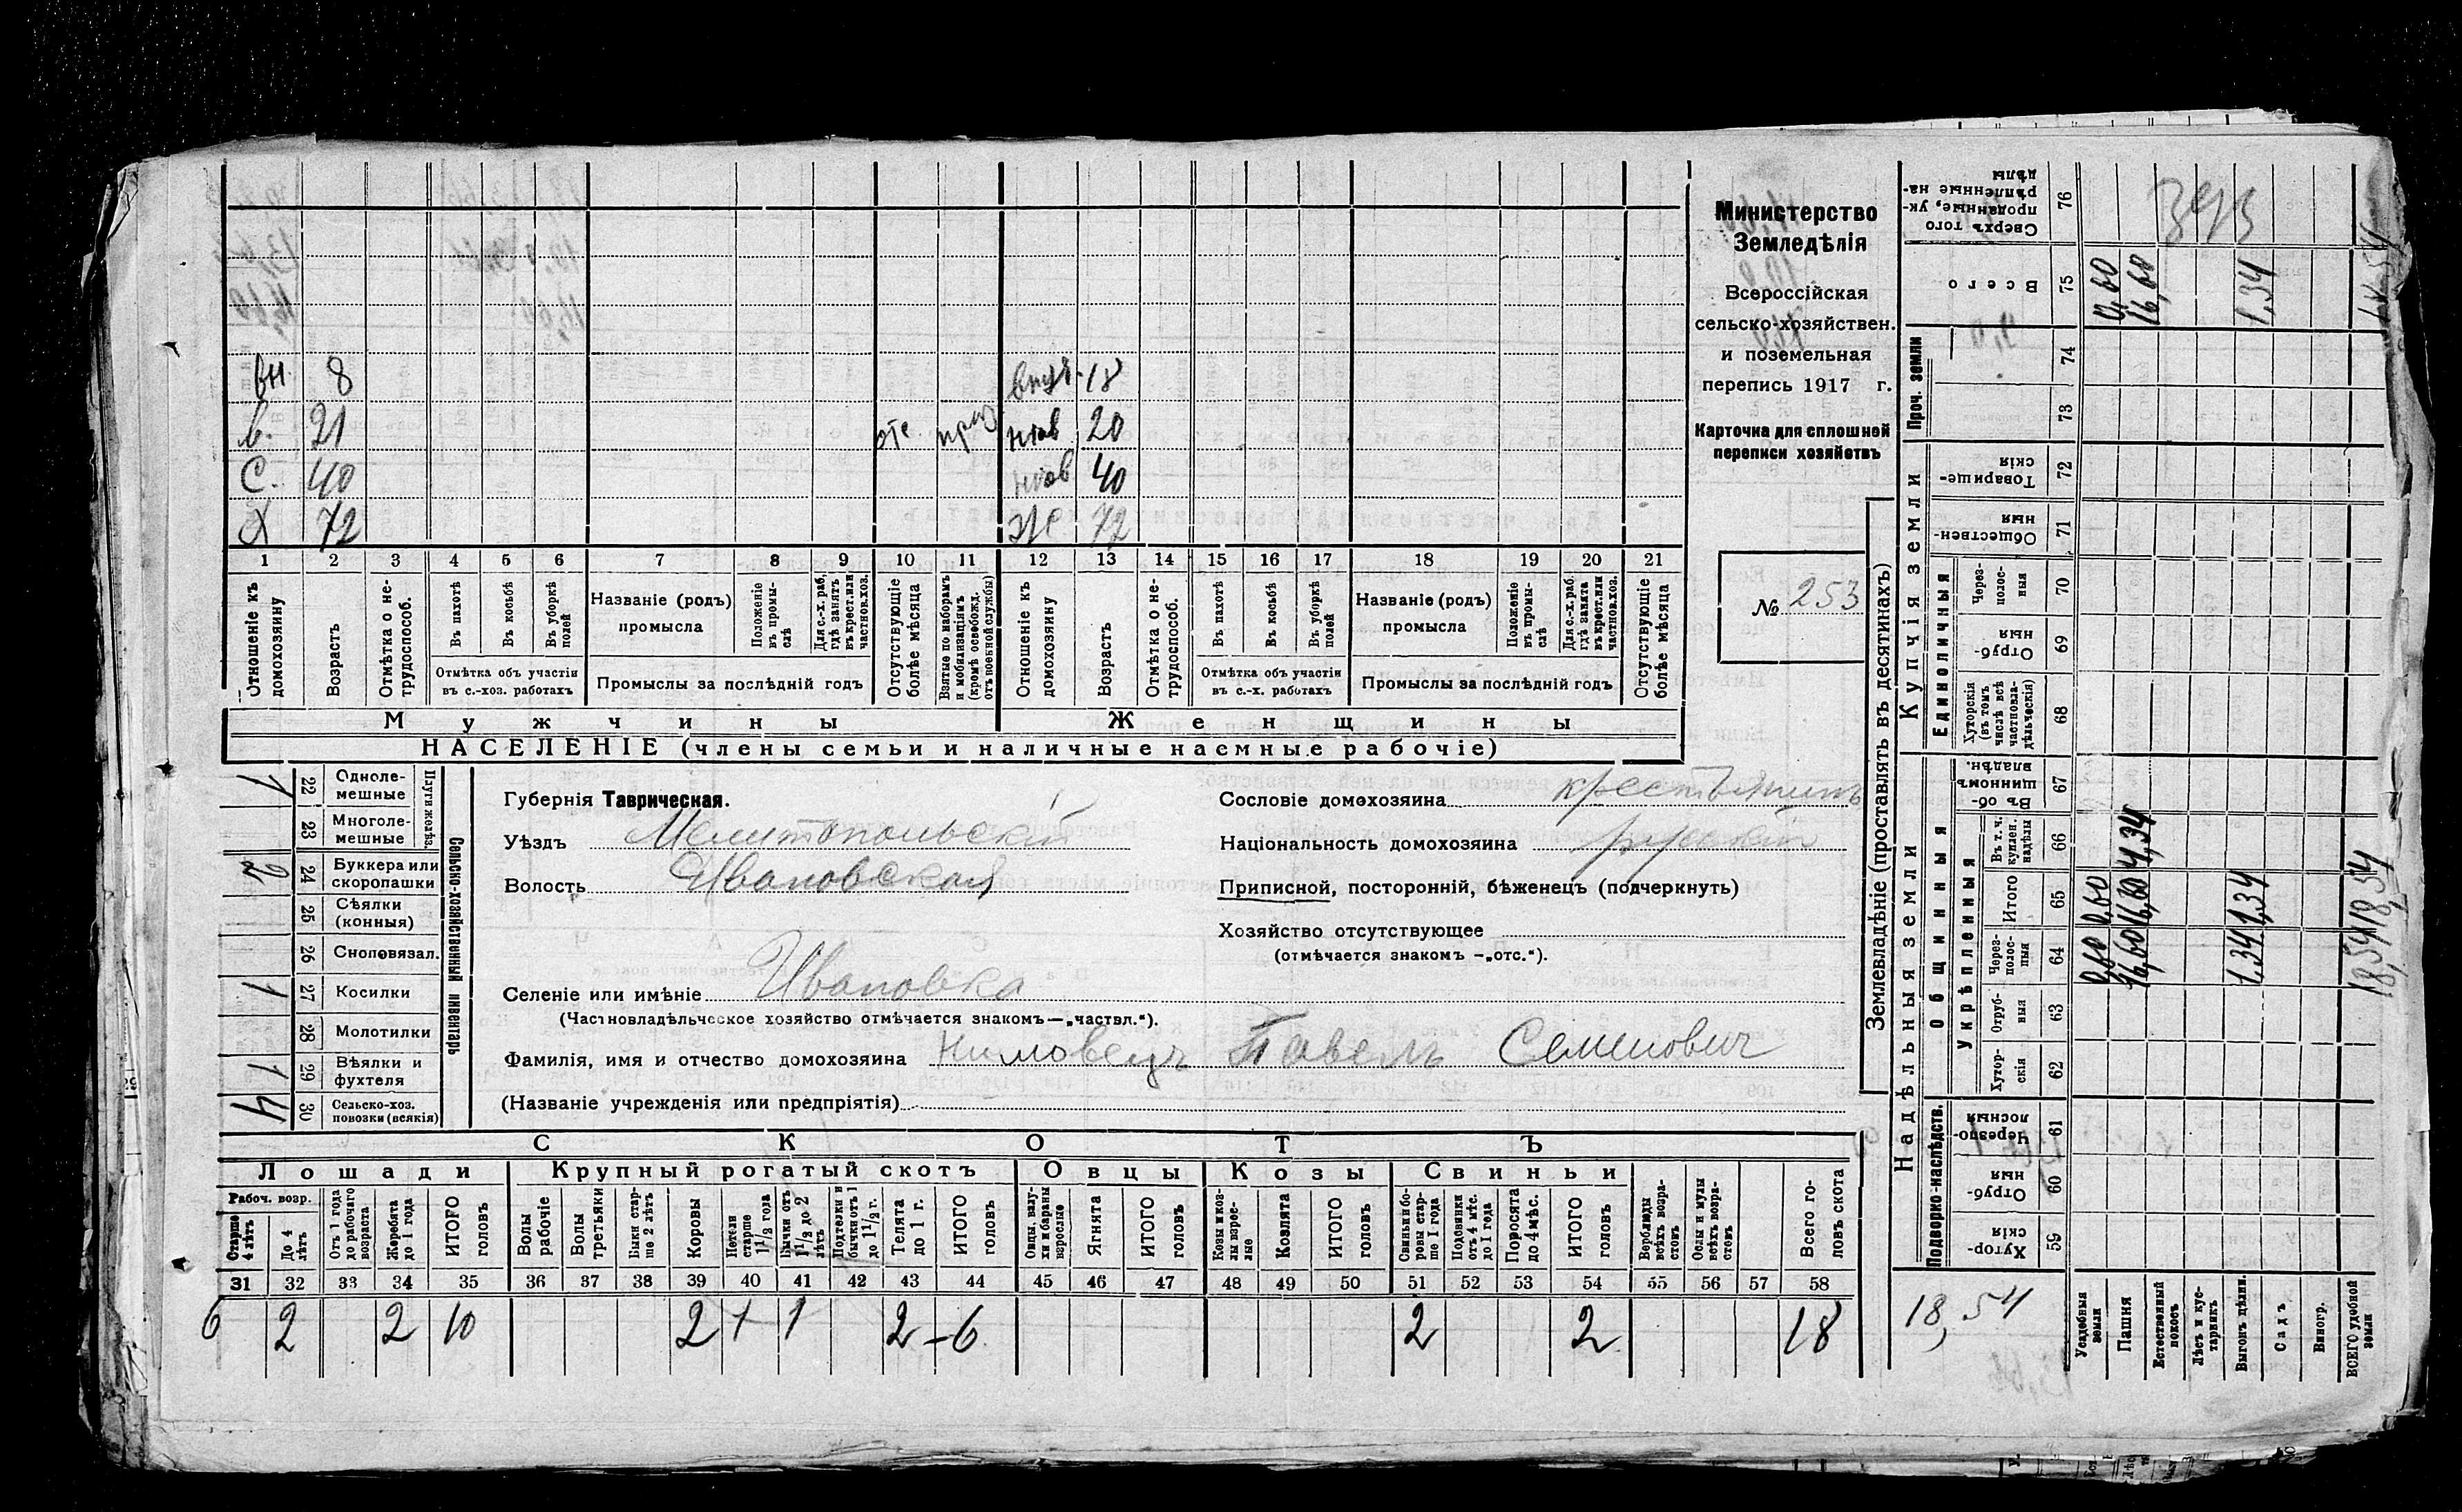 вн. 8 внуч. 18
в. 21 отс приз нев 20
С. 40 нев 40
Х 72 Ж 72
1 2 3 4 5 6 7 8 9 10 11 12 13 14 15 16 17 18 19 20 21
Отношеніе къ домохозяину
Возрастъ
Отмѣтка о нетрудоспособ.
Въ пахотѣ
Въ косьбѣ
Въ уборкѣ полей
Отмѣтка объ участіи въ с.-хоз. работахъ
Названіе (родъ) промысла
Положеніе въ промыслѣ
Для с.-х. раб. гдѣ занятъ въ крест. или частнов. хоз.
Промыслы за послѣдній годъ
Отсутствующіе болѣе мѣсяца
Взятые по наборамъ и мобилизаціямъ (кромѣ освобожд. отъ военной службы)
Отношеніе къ домохозяину
Возрастъ
Отмѣтка о нетрудоспособ.
Въ пахотѣ
Въ косьбѣ
Въ уборкѣ полей
Отмѣтка объ участіи въ с.-х. работахъ
Названіе (родъ) промысла
Положеніе въ промыслѣ
Для с.-х. раб. гдѣ занята въ крест. или частнов. хоз.
Промыслы за послѣдній годъ
Отсутствующіе болѣе мѣсяца
Мужчины Женщины
НАСЕЛЕНІЕ (члены семьи и наличные наемные рабочіе)
Министерство
Земледѣлія
Всероссійская
сельско-хозяйствен.
и поземельная
перепись 1917 г.
Карточка для сплошной
переписи хозяйствъ
№ 253
Сельско-хозяйственный инвентарь
Плуги желѣз.
1 22 Однолемешные
23 Многолемешные
2 24 Буккера или скоропашки
25 Сѣялки (конныя)
26 Сноповязал.
1 27 Косилки
28 Молотилки
1 29 Вѣялки и фухтеля
4 30 Сельско-хоз. повозки (всякія)
Губернія Таврическая.
Уѣздъ Мелитопольскій
Волость Ивановская
Селеніе или имѣніе Ивановка
(Частновладѣльческое хозяйство отмѣчается знакомъ—„частвл.“).
Фамилія, имя и отчество домохозяина Нимовецъ Павелъ Семенович
(Названіе учрежденія или предпріятія)
Сословіе домохозяина крестьянинъ
Національность домохозяина русскій
Приписной, посторонній, бѣженец (подчеркнуть)
Хозяйство отсутствующее
(отмѣчается знакомъ –„отс.“).
СКОТЪ
Лошади Крупный рогатый скотъ Овцы Козы Свиньи
Рабоч. возр.
Старше 4 лѣтъ
До 4 лѣтъ
Отъ 1 года до рабочаго возраста
Жеребята до 1 года
ИТОГО головъ
Волы рабочіе
Волы третьяки
Быки старше 2 лѣтъ
Коровы
Нетели старше 1 1/2 года
Бычки отъ 1 1/2 до 2 лѣтъ
Подтелки и бычки отъ 1 до 1 1/2 г.
Телята до 1 г.
ИТОГО головъ
Овцы, валухи и бараны взрослые
Ягнята
ИТОГО головъ
Козы и козлы взрослые
Козлята
ИТОГО головъ
Свиньи и боровы старше 1 года
Подсвинки отъ 4 мѣс. до 1 года
Поросята до 4 мѣс.
ИТОГО головъ
Верблюды всѣхъ возрастовъ
Ослы и мулы всѣхъ возрастовъ
Всего головъ скота
31 32 33 34 35 36 37 38 39 40 41 42 43 44 45 46 47 48 49 50 51 52 53 54 55 56 57 58
6 2 2 10 2 1 1 2 – 6 2 2 18
Землевладѣніе (проставлять въ десятинахъ)
Купчія земли
Надѣльныя земли
Сверхъ того проданные, укрѣпленные надѣлы 76
Всего 75 0,60 16,60 1,34 18,54
Проч. земли 74 73
Товарищескія 72
Общественныя 71
Единоличныя
Черезполосныя 70
Отрубныя 69
Хуторскія (въ томъ числѣ всѣ частновладѣльческія) 68
Общинныя
Въ общинномъ владѣн. 67
Укрѣпленныя
Въ т. ч. куплен. надѣлы 66 4,34
Итого 65 0,60 16,60 1,34 18,54
Черезполосныя 64 0,60 16,60 1,34 18,54
Отрубныя 63
Хуторскія 62
Подворно-наслѣдств.
Черезполосныя 61
Отрубныя 60
Хуторскія 59
18,54
Усадебныя земли
Пашня
Естественный покосъ
Лѣсъ и кустарникъ
Выгонъ цѣлин.
Садъ
Виногр.
ВСЕГО удобной земли